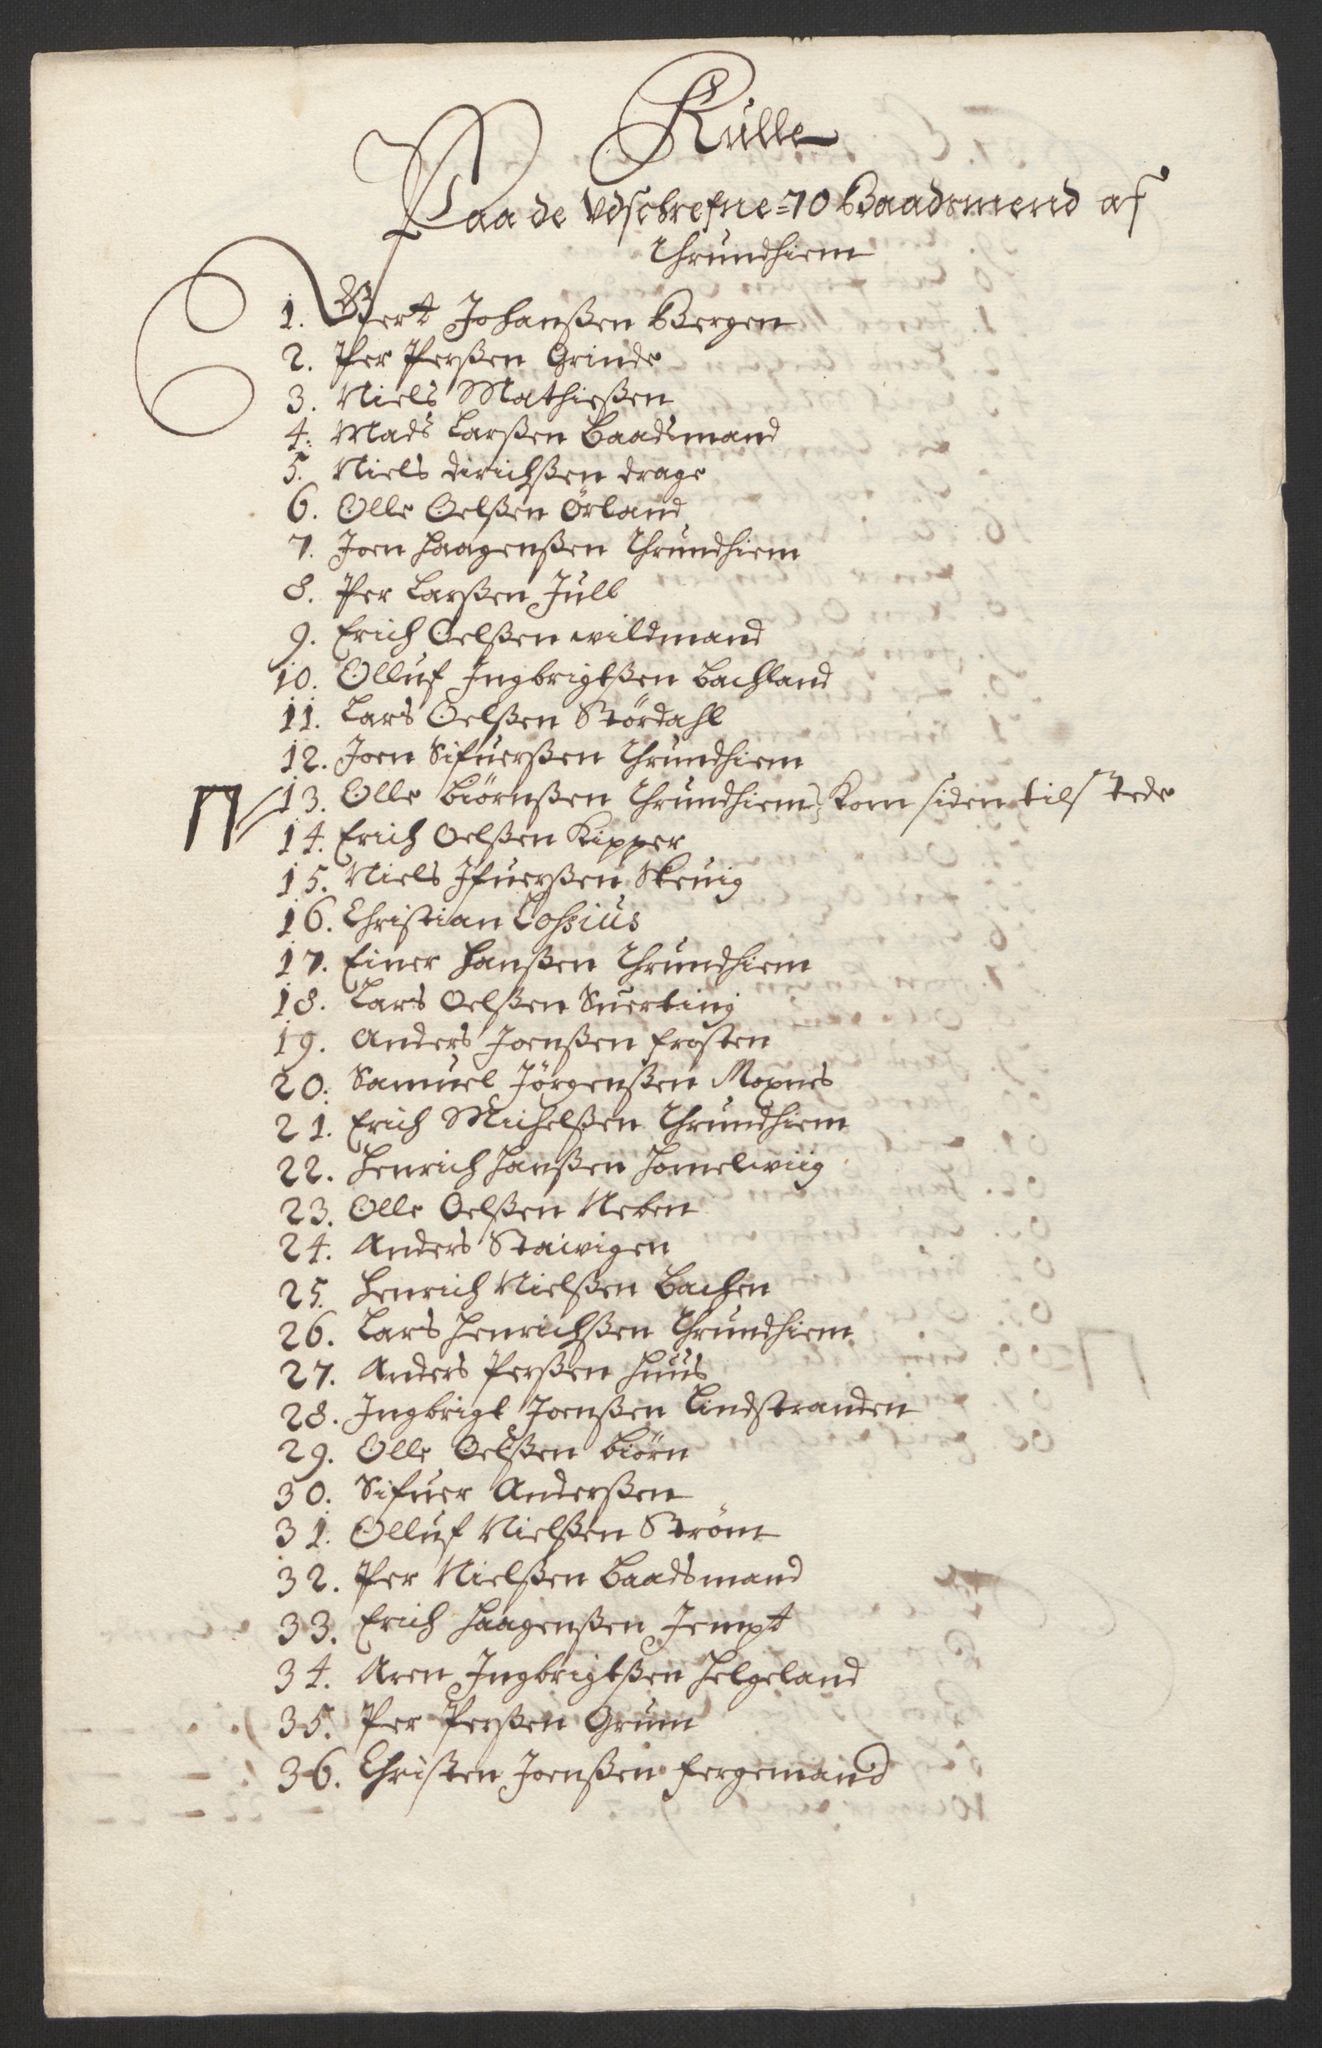 Rulle
Paa de Udschrefne 70 Baadsmend af
Thrundhiem
1. Giert Johanßen Bergen
2. Per Perßen Grinde
3. Niels Mathießen
4. Mads Larßen Baadsmand
5. Niels dirichßen drage
6. Olle Oelßen Örland
7. Joen Haagenßen Thrundhiem
8. Per Larßen Jull
9. Erich Oelßen wildmand
10. Olluf Ingbrigtßen Bachland
11. Lars Oelßen Stördahl
12. Joen Sifuerßen Thrundhiem
13. Olle Biörnßen Thrundhiem, kom siden tilstede
14. Erich Oelßen Kipper
15. Niels Ifuerßen Skeuig
16. Christian
17. Einer Hanßen Thrundhiem
18. Lars Oelßen Suerting
19. Anders Joenßen frosten
20. Samuel Jörgenßen Moxnes
21. Erich Michelßen Thrundhiem
22. Henrich Hanßen Homelwiig
23. Olle Oelßen Neben
24. Anders Staiwigen
25. Henrich Nielßen Bachen
26. Lars Henrichßen Thrundhiem
27. Anders Perßen Huus
28. Ingbrigt Joenßen Lindstranden
29. Olle Oelßen Biörn
30. Sifuer Anderßen
31. Olluf Nielßen Ström
32. Per Nielßen Baadsmand
33. Erich Haagenßen Jempt
34. Aren Ingbrigtßen Helgeland
35. Per Perßen Grum
36. Christen Joenßen fergemand